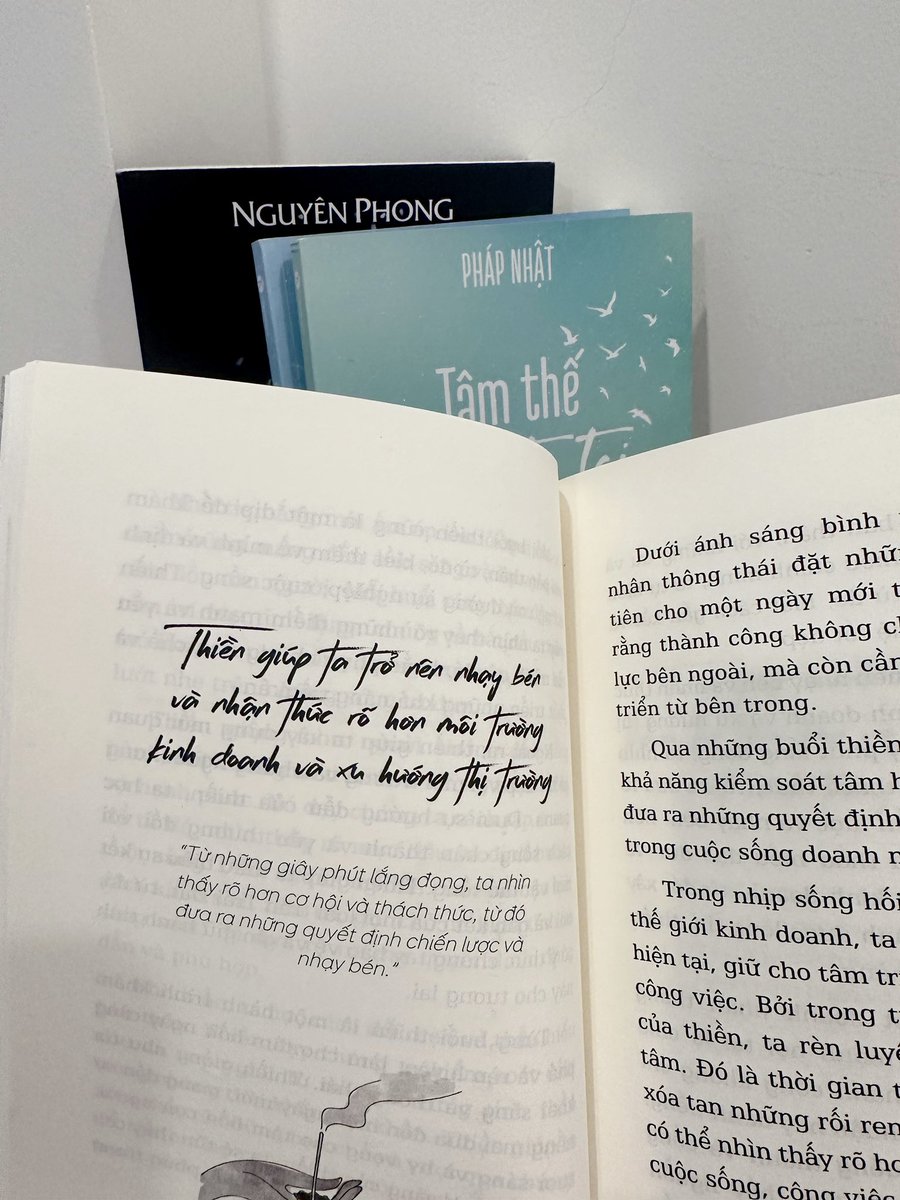 NGUYÊN PHONG
PHÁP NHẬT
Tâm thế
Thiền giúp ta trở nên nhạy bén
và nhận thức rõ hơn môi trường
kinh doanh và xu hướng thị trường
"Từ những giây phút lắng đọng, ta nhìn
thấy rõ hơn cơ hội và thách thức, từ đó
đưa ra những quyết định chiến lược và
nhạy bén."
Dưới ánh sáng bình
nhân thông thái đặt nhữ
tiên cho một ngày mới t
rằng thành công không c
lực bên ngoài, mà còn cần
triển từ bên trong.
Qua những buổi thiền
khả năng kiểm soát tâm h
đưa ra những quyết định
trong cuộc sống doanh n
Trong nhịp sống hối
thế giới kinh doanh, ta
hiện tại, giữ cho tâm tr
công việc. Bởi trong t
của thiền, ta rèn luyệ
tâm. Đó là thời gian t
xóa tan những rối ren
có thể nhìn thấy rõ hơ
cuộc sống, công việc